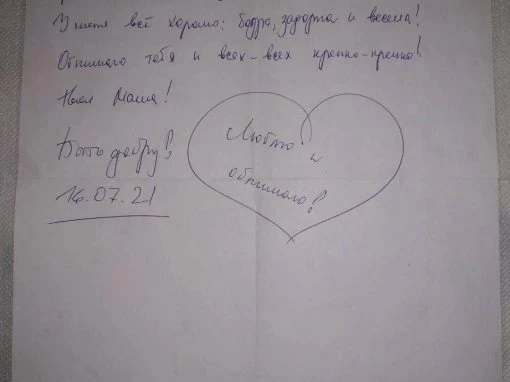 У меня всё хорошо: бодра, задорна и весела!
Обнимаю тебя и всех-всех крепко-крепко!
Твоя Маша!
Быть добру!
16.07.21
Люблю и
обнимаю!